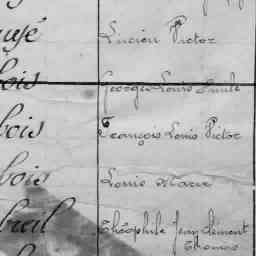 Lucien Victor
bois Georges Louis Emile
bois François Louis Victor
bois Louis Marie
breil Théophile Jean Clément
Thomas